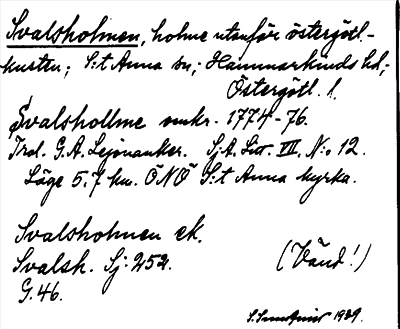 Svalsholmen, holme utanför östergötl-
kusten; S:t Anna sn; Hammarkinds hd;
Östergötl. l.
Svalshollme omkr. 1774-76.
Trol. G.A. Lejonanker. Sj.A. Litt. VII. N:o 12.
Läge 5.7 km. ÖNÖ S:t Anna kyrka.
Svalsholmen ek.
Svalsh. Sj: 252. (Vänd!)
G. 46.
1929.